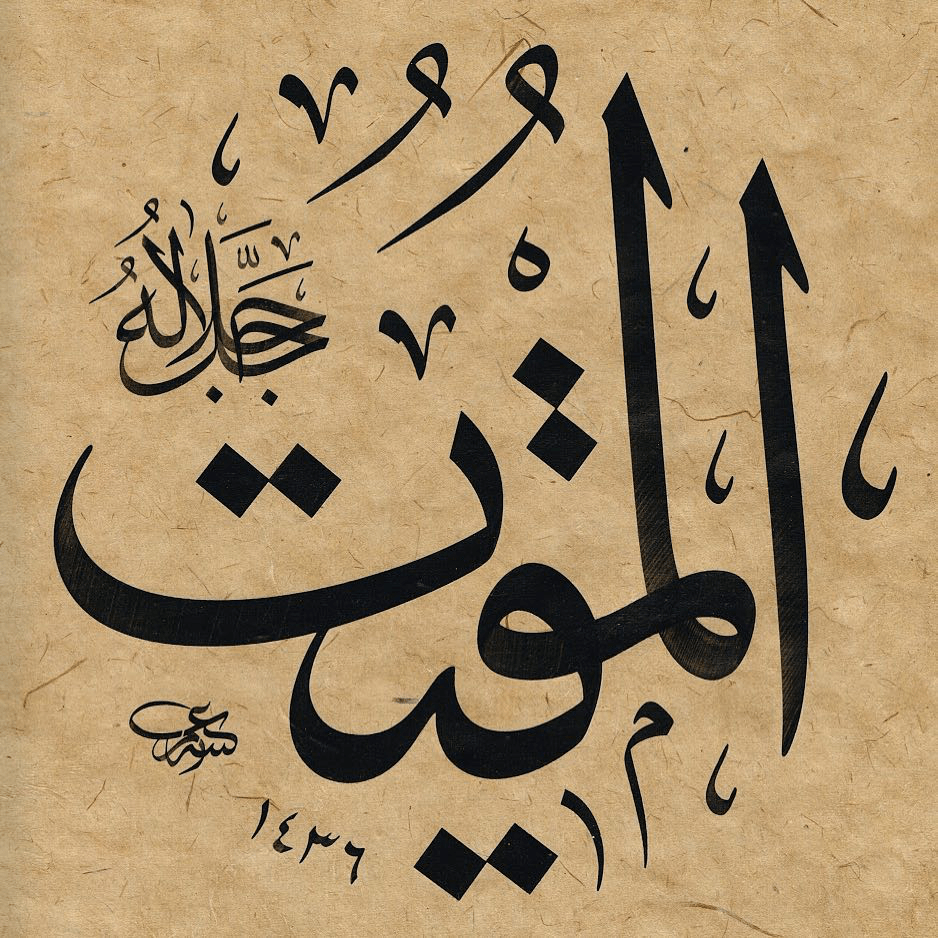 المُقيتُ
جَلَّ جَلَالُهُ
١٤٣٦